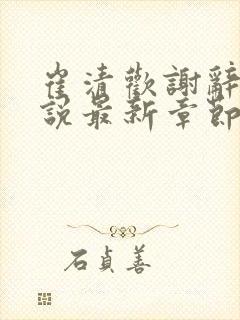 崔清歡謝辭
說最新章節
石貞善